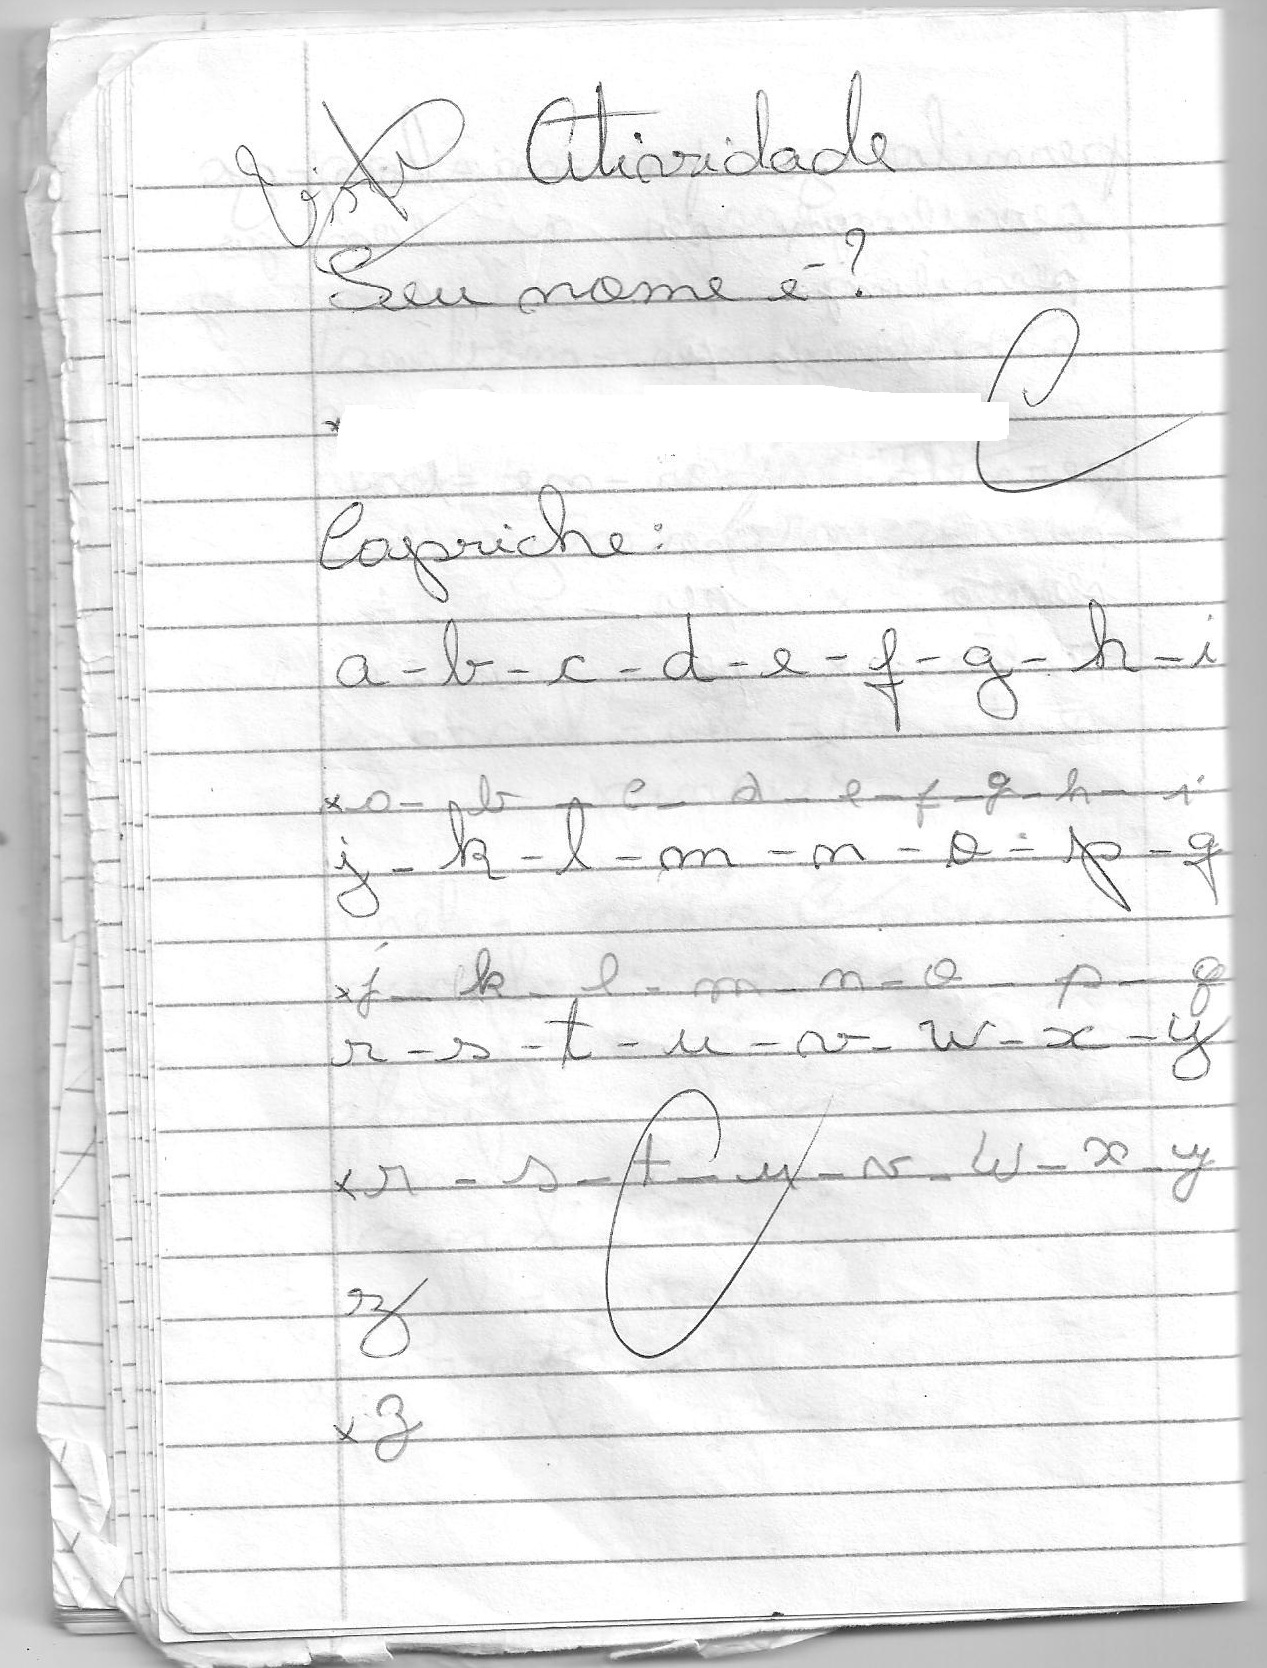 Visto Atividade
Seu nome é?
x
C
Capriche:
a - b - c - d - e - f - g - h - i
x a - b - c - d - e - f - g - h - i
j - k - l - m - n - o - p - q
x j - k - l - m - n - o - p - q
r - s - t - u - v - w - x - y
x r - s - t - u - v - w - x - y
C
z
x z